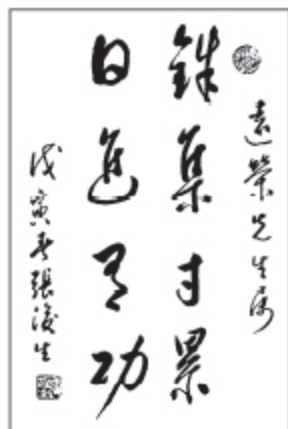 遠榮先生屬
銖集寸累
日進有功
戊寅春張浚生